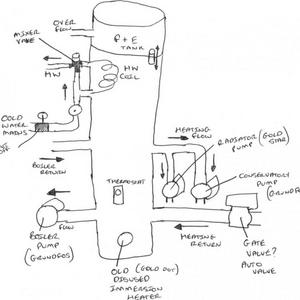 OVER
FLOW
MIXER
VALVE
F + E
TANK
HW
HW
COIL
COLD
WATER
MAINS
HEATING
FLOW
RADIATOR (GOLD
PUMP STAR)
BOILER
RETURN
THERMOSTAT
CONSERVATORY
PUMP
(GRUNDFOS)
FLOW
BOILER
PUMP
(GRUNDFOS)
HEATING
RETURN
GATE
VALVE?
AUTO
VALVE
OLD (GOLD DOT)
DISUSED
IMMERSION
HEATER